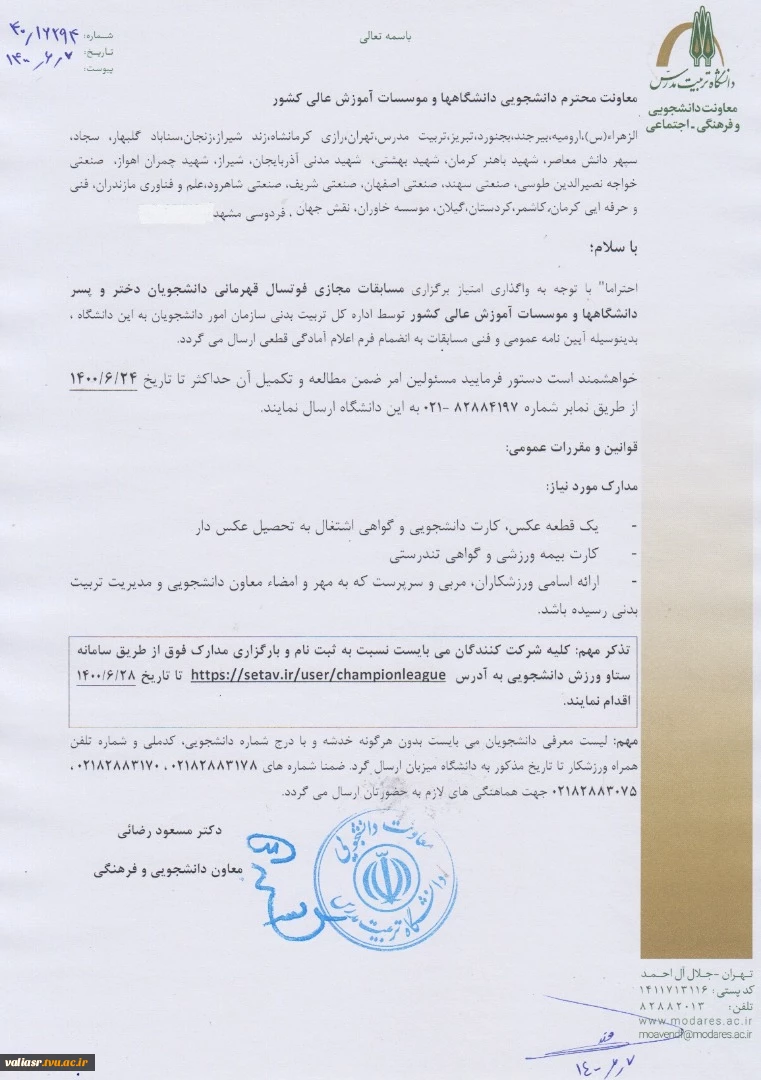 باسمه تعالی
شماره: ۴۰/۱۶۲۹۴
تاریخ: ۱۴۰۰/۶/۷
پیوست:
دانشگاه تربیت مدرس
معاونت دانشجویی
و فرهنگی - اجتماعی
معاونت محترم دانشجویی دانشگاهها و موسسات آموزش عالی کشور
الزهراء(س)،ارومیه،بیرجند،بجنورد،تبریز،تربیت مدرس،تهران،رازی کرمانشاه،زند شیراز،زنجان،سناباد گلبهار، سجاد،
سپهر دانش معاصر، شهید باهنر کرمان، شهید بهشتی، شهید مدنی آذربایجان، شیراز، شهید چمران اهواز، صنعتی
خواجه نصیرالدین طوسی، صنعتی سهند، صنعتی اصفهان، صنعتی شریف، صنعتی شاهرود،علم و فناوری مازندران، فنی
و حرفه ایی کرمان،کاشمر،کردستان،گیلان، موسسه خاوران، نقش جهان ، فردوسی مشهد
با سلام؛
احتراما" با توجه به واگذاری امتیاز برگزاری مسابقات مجازی فوتسال قهرمانی دانشجویان دختر و پسر
دانشگاهها و موسسات آموزش عالی کشور توسط اداره کل تربیت بدنی سازمان امور دانشجویان به این دانشگاه ،
بدینوسیله آیین نامه عمومی و فنی مسابقات به انضمام فرم اعلام آمادگی قطعی ارسال می گردد.
خواهشمند است دستور فرمایید مسئولین امر ضمن مطالعه و تکمیل آن حداکثر تا تاریخ ۱۴۰۰/۶/۲۴
از طریق نمابر شماره ۸۲۸۸۴۱۹۷ -۰۲۱ به این دانشگاه ارسال نمایند.
قوانین و مقررات عمومی:
مدارک مورد نیاز:
- یک قطعه عکس، کارت دانشجویی و گواهی اشتغال به تحصیل عکس دار
- کارت بیمه ورزشی و گواهی تندرستی
- ارائه اسامی ورزشکاران، مربی و سرپرست که به مهر و امضاء معاون دانشجویی و مدیریت تربیت
بدنی رسیده باشد.
تذکر مهم: کلیه شرکت کنندگان می بایست نسبت به ثبت نام و بارگزاری مدارک فوق از طریق سامانه
ستاو ورزش دانشجویی به آدرس https://setav.ir/user/championleague تا تاریخ ۱۴۰۰/۶/۲۸
اقدام نمایند.
مهم: لیست معرفی دانشجویان می بایست بدون هرگونه خدشه و با درج شماره دانشجویی، کدملی و شماره تلفن
همراه ورزشکار تا تاریخ مذکور به دانشگاه میزبان ارسال گرد. ضمنا شماره های ۰۲۱۸۲۸۸۳۱۷۸ ، ۰۲۱۸۲۸۸۳۱۷۰ ،
۰۲۱۸۲۸۸۳۰۷۵ جهت هماهنگی های لازم به حضورتان ارسال می گردد.
دکتر مسعود رضائی
معاون دانشجویی و فرهنگی
معاونت دانشجویی
دانشگاه تربیت مدرس
تهران -جلال آل احمد
کدپستی: ۱۴۱۱۷۱۳۱۱۶
تلفن: ۸۲۸۸۲۰۱۳
www.modares.ac.ir
moavendf@modares.ac.ir
۱۴۰۰/۶/۷
valiasr.tvu.ac.ir